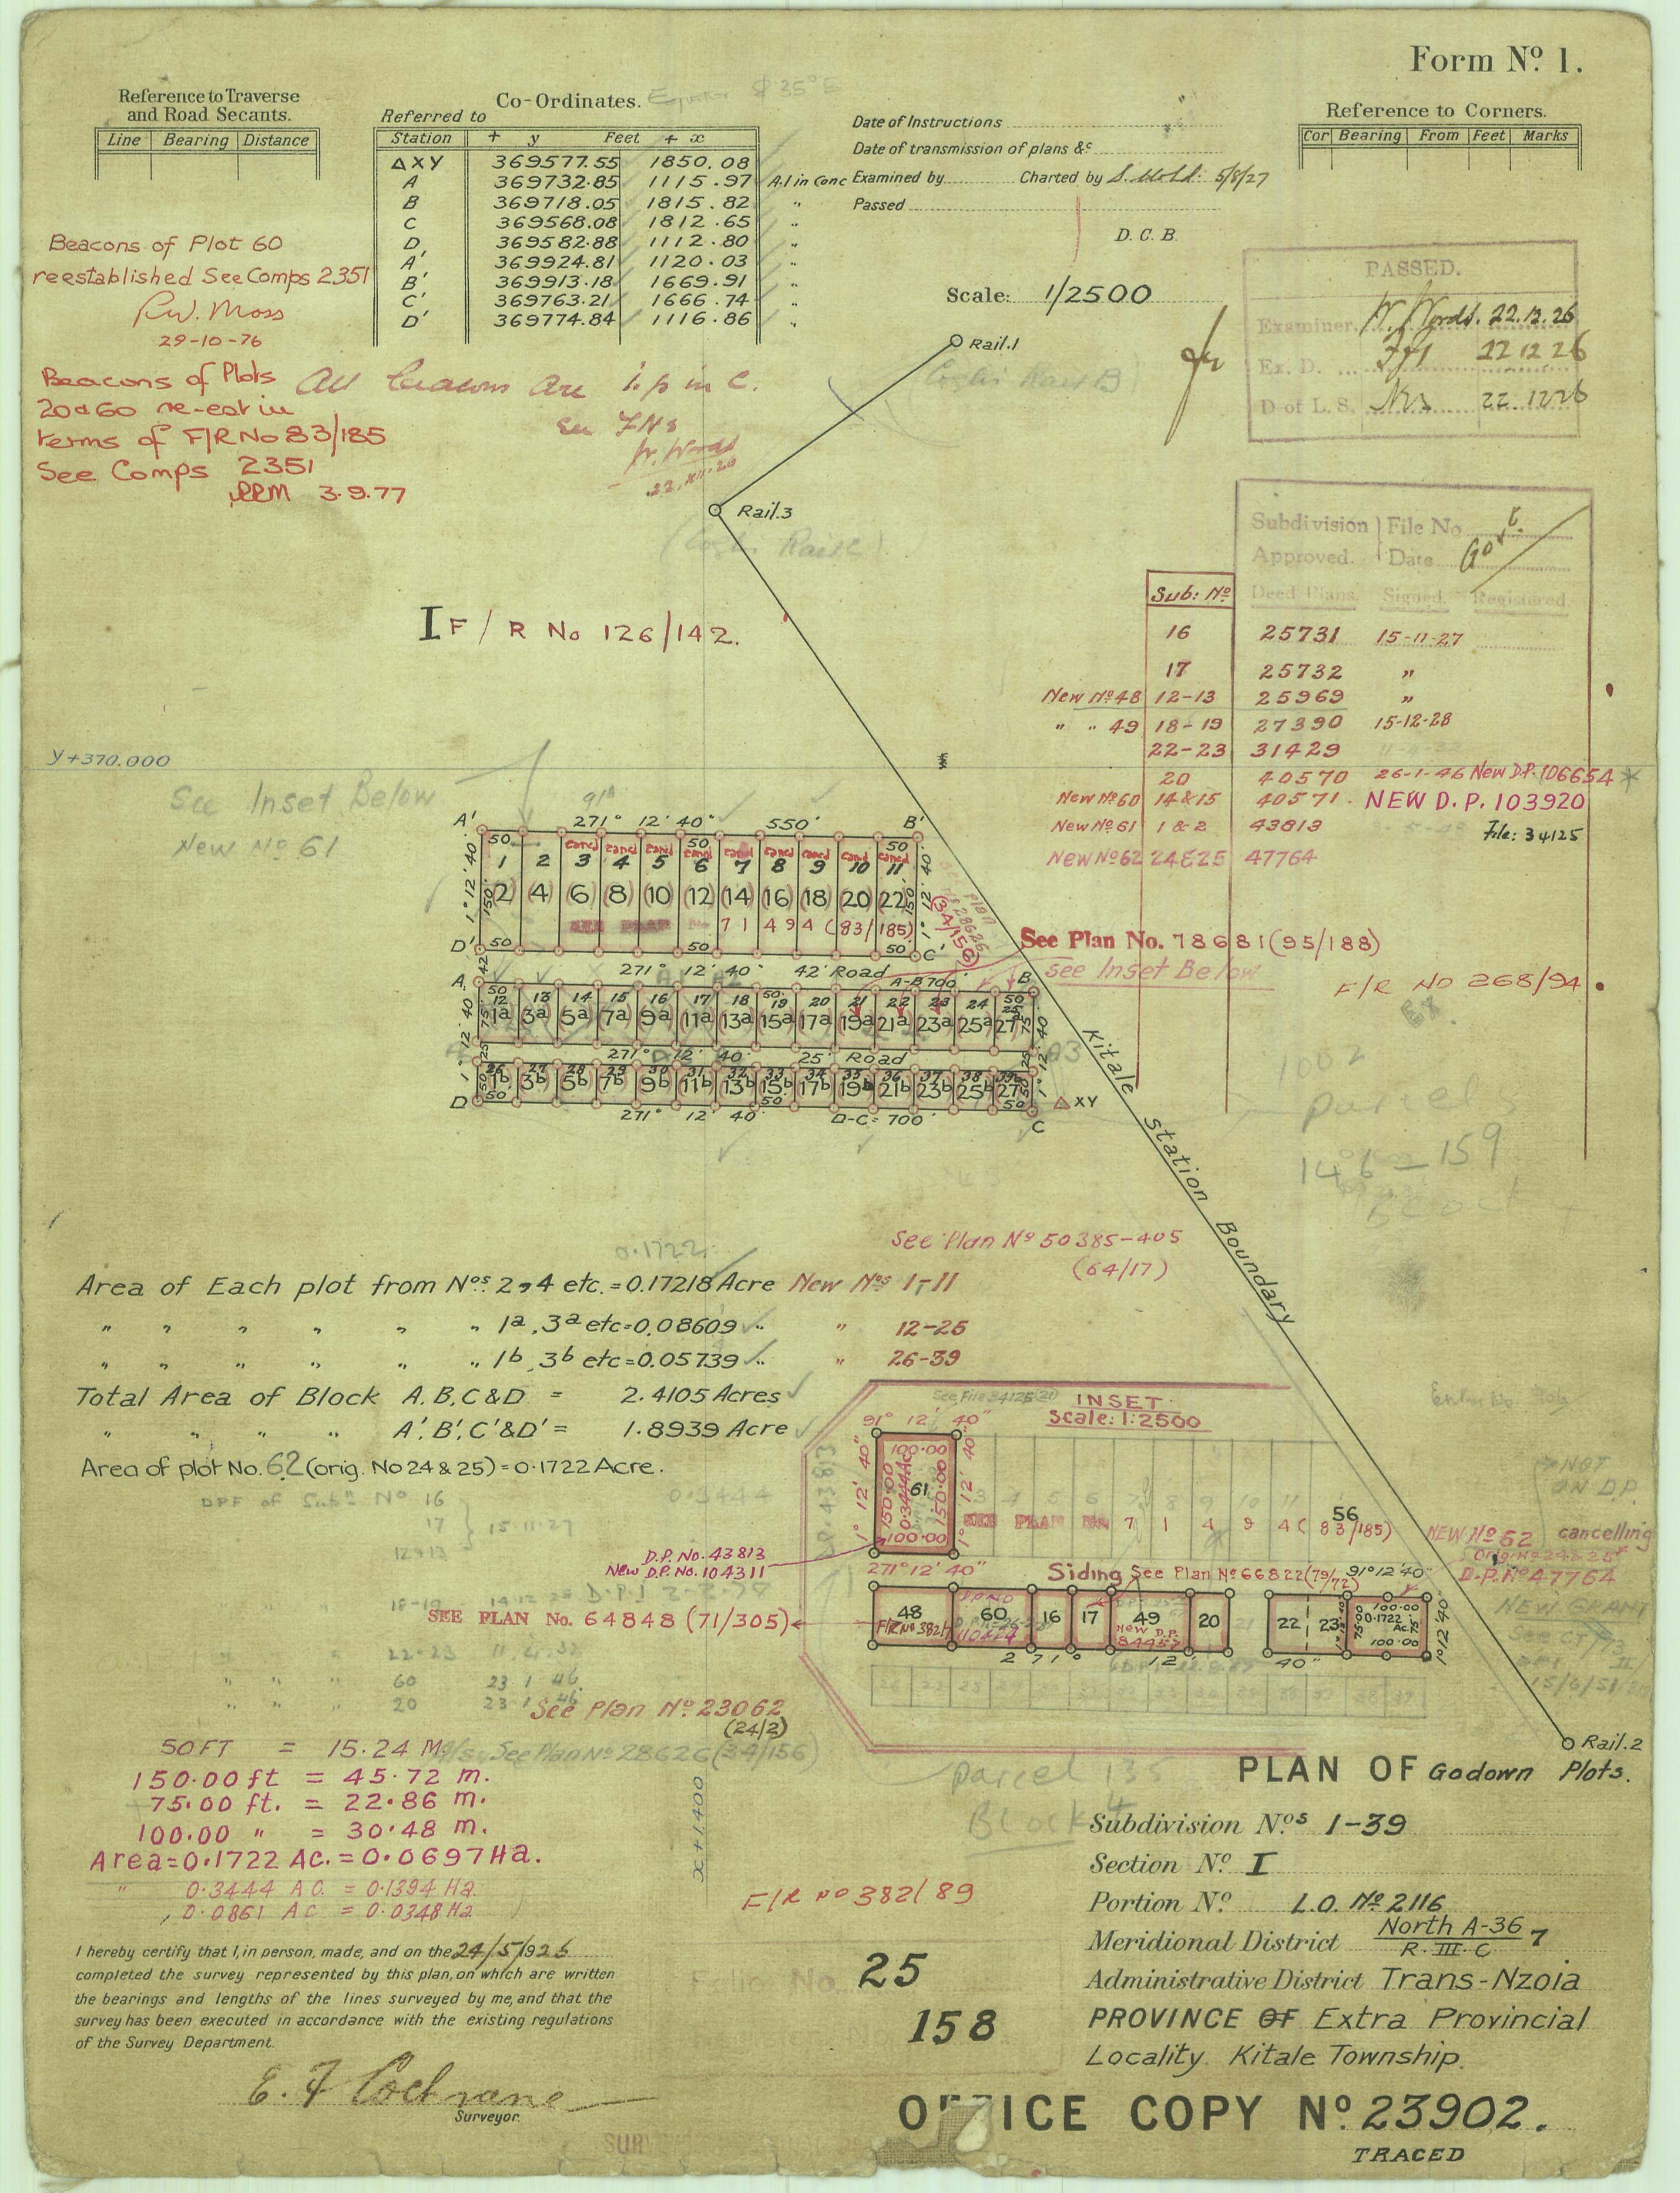 Form No. 1.
Reference to Traverse
and Road Secants.
Line Bearing Distance
Co-Ordinates.
Referred to
Station + y Feet + x
△XY 369577.55 1850.08
A 369732.85 1115.97 A.I in Conc
B 369718.05 1815.82 "
C 369568.08 1812.65 "
D 369582.88 1112.80 "
A' 369924.81 1120.03 "
B' 369913.18 1669.91 "
C' 369763.21 1666.74 "
D' 369774.84 1116.86 "
Date of Instructions
Date of transmission of plans &c
Examined by Charted by 5/8/27
Passed
D. C. B.
Scale: 1/2500
Reference to Corners.
Cor Bearing From Feet Marks
PASSED.
Examiner. W. Words. 22.12.26
Ex. D. 22 12 26
D of L. S. 22.12 26
Beacons of Plot 60
reestablished See Comps 2351
R.W. Moss
29-10-76
Beacons of Plots
20 & 60 re-est in
terms of F/R No 83/185
See Comps 2351
3.9.77
All beacons are i.p in C.
see FNs
W. Words
Rail.1
Rail.3
I F/R No 126/142.
Subdivision File No
Approved. Date
Sub: No Deed Plans. Signed. Registered.
16 25731 15-11-27
17 25732 "
New No 48 12-13 25969 "
" " 49 18-19 27390 15-12-28
22-23 31429
20 40570 26-1-46 New D.P. 106654 *
New No 60 14&15 40571. NEW D.P. 103920
New No 61 1 & 2 43813 File: 34125
New No 62 24&25 47764
y+370.000
See Inset Below
New No 61
A' 271° 12' 40" 550' B'
50 50 50
1 2 3 4 5 6 7 8 9 10 11
cancd cancd cancd cancd cancd cancd cancd cancd cancd
(2) (4) (6) (8) (10) (12) (14) (16) (18) (20) (22)
SEE PLAN No 71494 (83/185)
1° 12' 40" 150'
1° 12' 40" 150'
D' 50 50 50 C'
42' 271° 12' 40" 42' Road A-B 700'
A B
See Plan No. 78681 (95/188)
see Inset Below
F/R No 268/94
12 13 14 15 16 17 18 19 20 21 22 23 24 25
1a 3a 5a 7a 9a 11a 13a 15a 17a 19a 21a 23a 25a 27a
271° 12' 40" 25' Road
26 27 28 29 30 31 32 33 34 35 36 37 38 39
1b 3b 5b 7b 9b 11b 13b 15b 17b 19b 21b 23b 25b 27b
D 50 50 50 C
△XY
271° 12' 40" D-C= 700'
Kitale Station Boundary
1002
parcels
146-159
Block
See Plan No 50385-405
(64/17)
0.1722
Area of Each plot from Nos. 2,4 etc. = 0.17218 Acre New Nos 1-11
" " " " " " 1a, 3a etc = 0.08609 " " 12-25
" " " " " " 1b, 3b etc = 0.05739 " " 26-39
Total Area of Block A, B, C & D = 2.4105 Acres
" " " " A', B', C' & D' = 1.8939 Acre
Area of plot No. 62 (orig. No 24 & 25) = 0.1722 Acre.
DPF of Subn No 16
17 15.11.27
12&13
18-19
22-23 11.4.32
60 23 1 46
20 23 1 46
0.3444
See File 34125 (21)
INSET
Scale: 1:2500
91° 12' 40"
100.00
1° 12' 40" 150.00 0.3444 Ac 61 150.00 1° 12' 40"
100.00
3 4 5 6 7 8 9 10 11 56
SEE PLAN No 71494 (83/185)
271° 12' 40"
D.P. No. 43813
New D.P. No. 104311
Siding See Plan No 66822 (79/72) 91° 12' 40"
SEE PLAN No. 64848 (71/305)
48 60 16 17 49 20 21 22 23
F/R No 382/89
New D.P.
84457
100.00
75.00 0.1722 Ac. 75.00
100.00
1° 12' 40"
271° 12' 40"
NOT
ON D.P.
NEW No 62 cancelling
Orig. No 24 & 25
D.P. No 47764
NEW GRANT
15/6/51
Rail.2
See Plan No. 23062
(24/2)
Also See Plan No 28626 (34/156)
50 FT = 15.24 M.
150.00 ft = 45.72 m.
75.00 ft. = 22.86 m.
100.00 " = 30.48 m.
Area = 0.1722 AC. = 0.0697 Ha.
" 0.3444 AC. = 0.1394 Ha.
" 0.0861 AC = 0.0348 Ha
x+1.400
parcel 135
Block 4
F/R No 382/89
PLAN OF Godown Plots.
Subdivision Nos 1-39
Section No. I
Portion No. L.O. No 2116
Meridional District North A-36 7
R. III. C
Administrative District Trans-Nzoia
PROVINCE OF Extra Provincial
Locality Kitale Township.
I hereby certify that I, in person, made, and on the 24/5/1926
completed the survey represented by this plan, on which are written
the bearings and lengths of the lines surveyed by me, and that the
survey has been executed in accordance with the existing regulations
of the Survey Department.
E. F. Cochrane
Surveyor.
Folio No. 25
158
OFFICE COPY No 23902.
TRACED